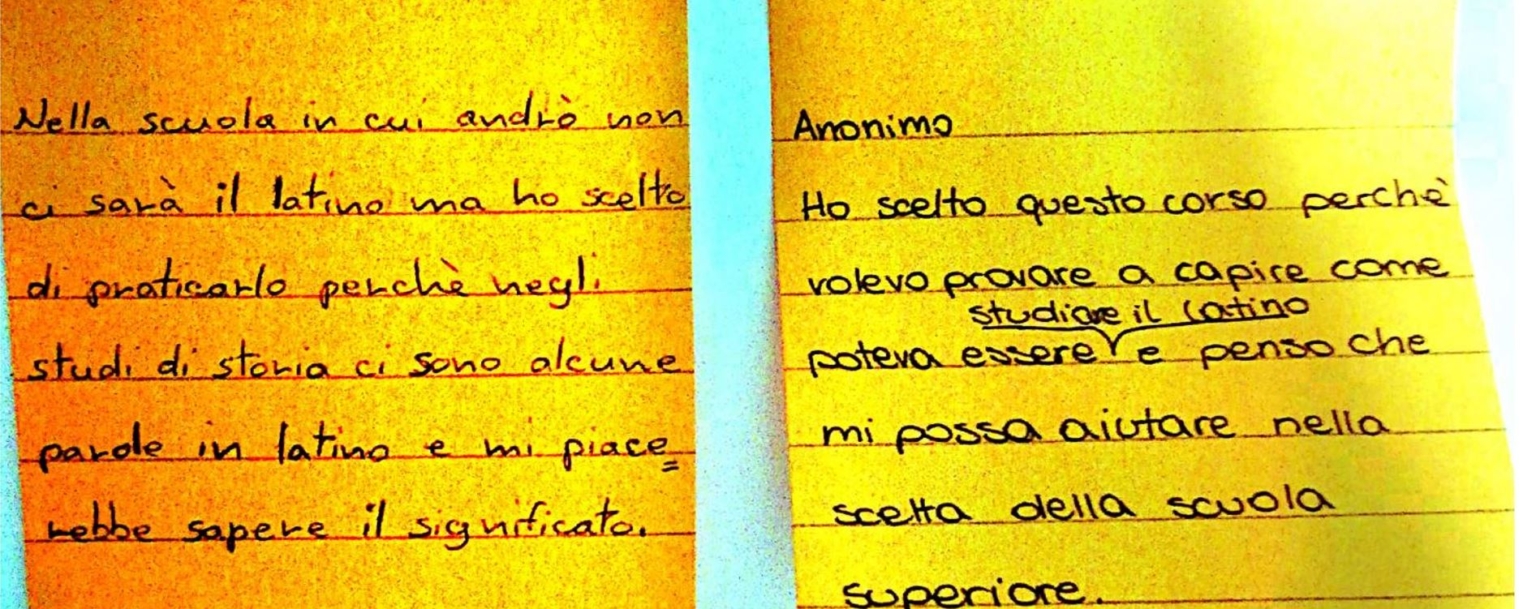 Nella scuola in cui andrò non
ci sarà il latino ma ho scelto
di praticarlo perchè negli
studi di storia ci sono alcune
parole in latino e mi piace=
rebbe sapere il significato.
Anonimo
Ho scelto questo corso perchè
volevo provare a capire come
studiare il latino
poteva essere e penso che
mi possa aiutare nella
scelta della scuola
superiore.